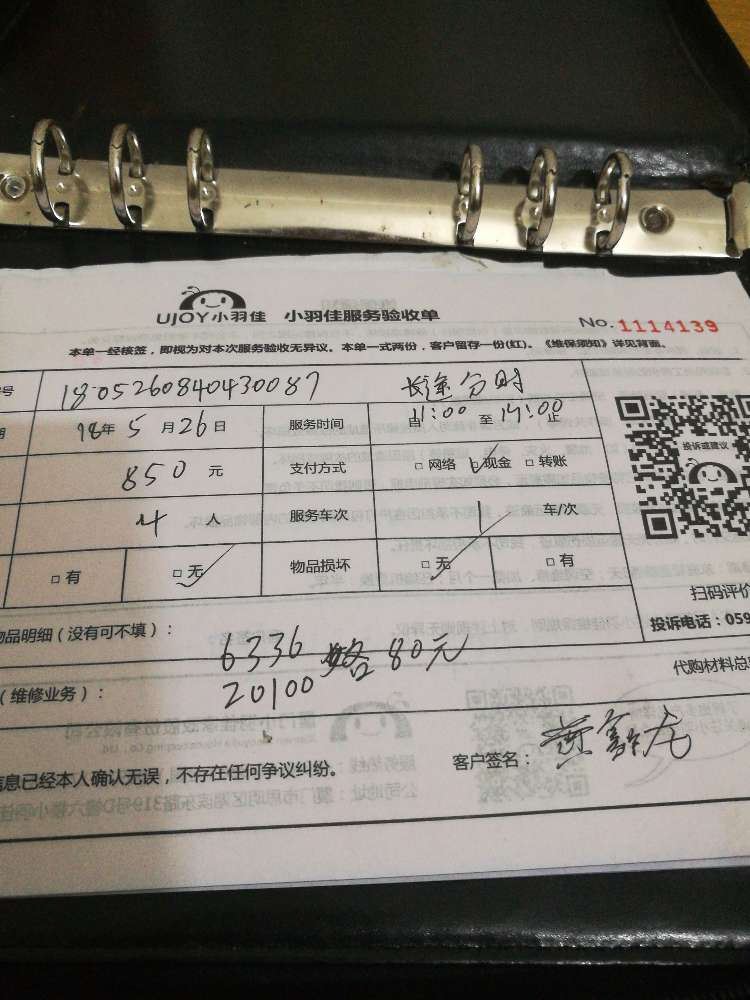 UJOY小羽佳 小羽佳服务验收单
No. 1114139
本单一经核签，即视为对本次服务验收无异议。本单一式两份，客户留存一份(红)。《维保须知》详见背面。
号 1805260840430087 长途 分时
期 18年5月26日 服务时间 自11:00至14:00止
850元 支付方式 □网络 □现金 □转账
投诉或建议
4人 服务车次 1 车/次
□有 □无 物品损坏 □无 □有
扫码评价
物品明细（没有可不填）： 投诉电话：059
6336 路80元
（维修业务）： 20100 代购材料总
信息已经本人确认无误，不存在任何争议纠纷。 客户签名：